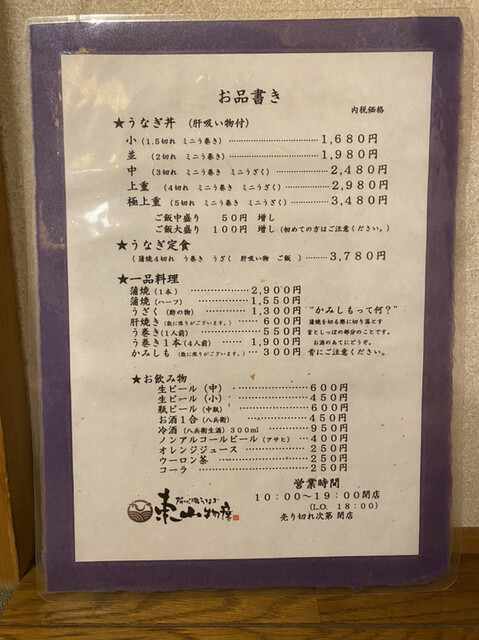 お品書き
内税価格
★うなぎ丼 (肝吸い物付)
小 (1.5切れ ミニう巻き) …… 1,680円
並 (2切れ ミニう巻き) …… 1,980円
中 (3切れ ミニう巻き ミニうざく) …… 2,480円
上重 (4切れ ミニう巻き ミニうざく) …… 2,980円
極上重 (5切れ ミニう巻き ミニうざく) …… 3,480円
ご飯中盛り 50円 増し
ご飯大盛り 100円 増し (初めての方はご注意ください。)
★うなぎ定食
(蒲焼4切れ う巻き うざく 肝吸い物 ご飯 ) …… 3,780円
★一品料理
蒲焼 (1本) …… 2,900円
蒲焼 (ハーフ) …… 1,550円
うざく (酢の物) …… 1,300円
肝焼き (数に限りがございます。) …… 600円
う巻き (1人前) …… 550円
う巻き1本 (4人前) …… 1,900円
かみしも (数に限りがございます。) …… 300円
"かみしもって何?"
蒲焼を切る際に切り落とす
首としっぽの部分のことです。
お酒のあてにどうぞ。
骨にご注意ください。
★お飲み物
生ビール (中) …… 600円
生ビール (小) …… 450円
瓶ビール (中瓶) …… 600円
お酒1合 (八兵衛) …… 450円
冷酒 (八兵衛生酒) 300ml …… 950円
ノンアルコールビール (アサヒ) …… 400円
オレンジジュース …… 250円
ウーロン茶 …… 250円
コーラ …… 250円
営業時間
10:00~19:00閉店
(L.O. 18:00)
売り切れ次第 閉店
東山物産